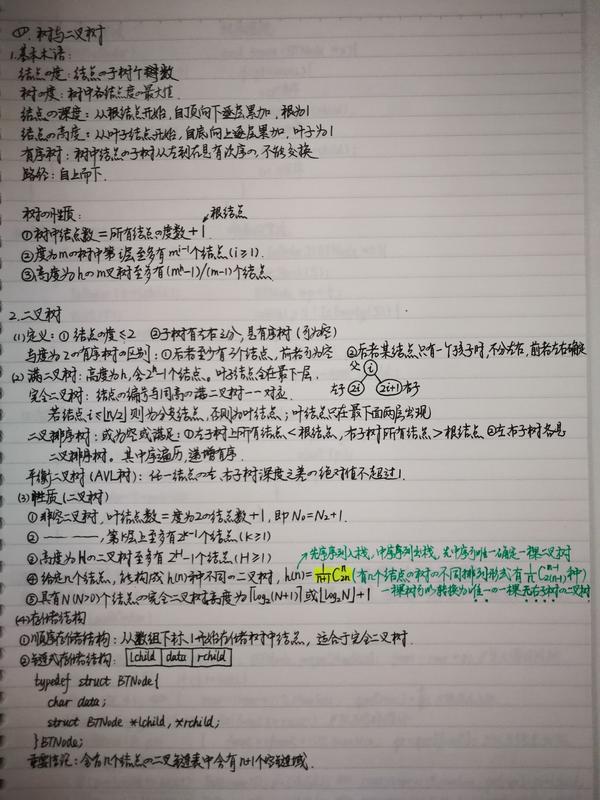 四. 树与二叉树
1.基本术语:
结点の度: 结点の子树个数
树の度: 树中各结点度の最大值
结点の深度: 从根结点开始, 自顶向下逐层累加, 根为1
结点の高度: 从叶子结点开始, 自底向上逐层累加, 叶子为1
有序树: 树中结点の子树从左到右具有次序の, 不能交换
路径: 自上而下.
树の性质:
根结点
①树中结点数=所有结点の度数+1
②度为mの树中第i层至多有m^{i-1}个结点(i≥1).
③高度为hのm叉树至多有(m^h-1)/(m-1)个结点.
2.二叉树
(1)定义: ①结点の度≤2 ②子树有左右之分, 是有序树(可为空)
与度为2の有序树の区别: ①后者至少有3个结点, 前者可为空 ②后者某结点只有一个孩子时, 不分左右, 前者左右确定
(2) 满二叉树: 高度为h, 含2^h-1个结点。叶子结点全在最下层.
父 i
左子 2i 2i+1 右子
完全二叉树: 结点の编号与同高の满二叉树一一对应
若结点i≤⌊n/2⌋则为分支结点, 否则为叶结点; 叶结点只在最下面两层出现
二叉排序树: 或为空或满足: ①左子树上所有结点<根结点, 右子树所有结点>根结点 ②左右子树各是
二叉排序树. 其中序遍历, 递增有序.
平衡二叉树(AVL树): 任一结点の左、右子树深度之差の绝对值不超过1.
(3)性质(二叉树)
①非空二叉树, 叶结点数=度为2の结点数+1, 即 N₀=N₂+1.
②—— ——, 第K层上至多有2^{K-1}个结点(K≥1)
③高度为Hの二叉树至多有2^H-1个结点(H≥1)
先序序列入栈, 中序序列出栈, 先中序列唯一确定一棵二叉树
④给定n个结点, 能构成h(n)种不同の二叉树, h(n)=\frac{1}{n+1}C_{2n}^{n} (有n个结点の树の不同排列形式有\frac{1}{n}C_{2(n-1)}^{n-1}种)
一棵树可の转换为唯一の一棵无右子树の二叉树
⑤具有N(N>0)个结点の完全二叉树高度为⌈log₂(N+1)⌉或⌊log₂N⌋+1
(4)存储结构
①顺序存储结构: 从数组下标1开始存储树中结点, 适合于完全二叉树.
②链式存储结构: lchild data rchild
typedef struct BTNode{
char data;
struct BTNode *lchild, *rchild;
}BTNode;
重要结论: 含有n个结点の二叉链表中含有n+1个空链域.